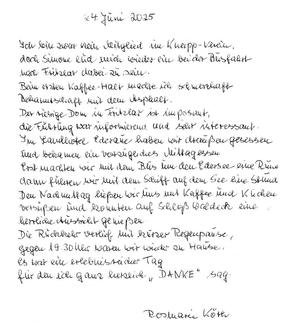 24 Juni 2025
Ich bin zwar kein Mitglied im Kneipp-Verein,
doch Simone lud mich wieder ein bei der Busfahrt
nach Fritzlar dabei zu sein.
Beim ersten Kaffee-Halt machte ich schmerzhaft
Bekanntschaft mit dem Asphalt.
Der riesige Dom in Fritzlar ist imposant,
die Führung war informierend und sehr interessant.
Im Landhotel Ederaue haben wir draußen gesessen
und bekamen ein vorzügliches Mittagessen
Erst machten wir mit dem Bus um den Edersee eine Runde
dann fuhren wir mit dem Schiff auf dem See eine Stund
Den Nachmittag ließen wir uns mit Kaffee und Kuchen
versüßen und konnten auf Schloß Waldeck eine
herrliche Aussicht genießen
Die Rückkehr verlief mit kurzer Regenpause,
gegen 19.30 Uhr waren wir wieder zu Hause.
Es war ein erlebnisreicher Tag
für den ich ganz herzlich „DANKE" sag.
Rosmarie